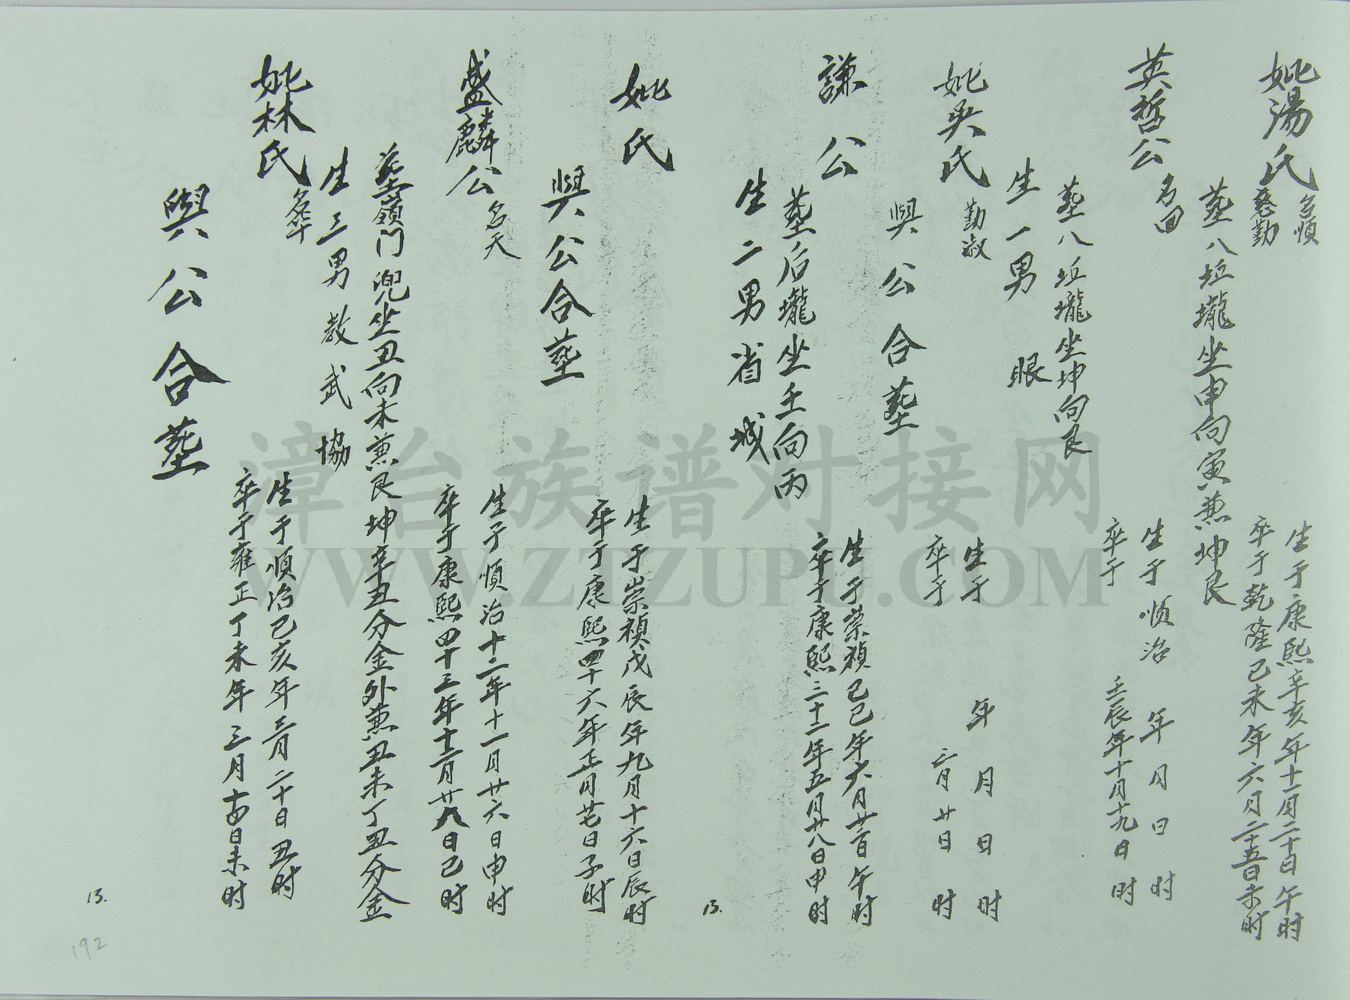 妣湯氏
名順
慈勤
生于康熙辛亥年十一月二十日午时
卒于乾隆己未年六月二十五日未时
葬八坵壠坐申向寅兼坤艮
英哲公
名回
生于順治 年 月 日 时
卒于 壬辰年十月十九日 时
葬八坵壠坐坤向艮
生一男 眼
妣吳氏
勤淑
生于 年 月 日 时
卒于 二月廿日 时
與公合葬
謙公
生于崇禎己巳年六月廿二日午时
卒于康熙三十二年五月廿八日申时
葬后壠坐壬向丙
生二男省城
妣氏
生于崇禎戊辰年九月十六日辰时
卒于康熙四十六年正月廿七日子时
與公合葬
盛麟公
名天
生于順治十二年十一月廿六日申时
卒于康熙四十三年十二月廿八日己时
葬嶺門兜坐丑向未兼艮坤辛丑分金外兼丑未丁丑分金
生三男教武協
妣林氏
名華
生于順治己亥年三月二十日丑时
卒于雍正丁未年三月十四日未时
與公合葬
13.
13.
192
漳台族谱对接网
WWW.ZTZUPU.COM